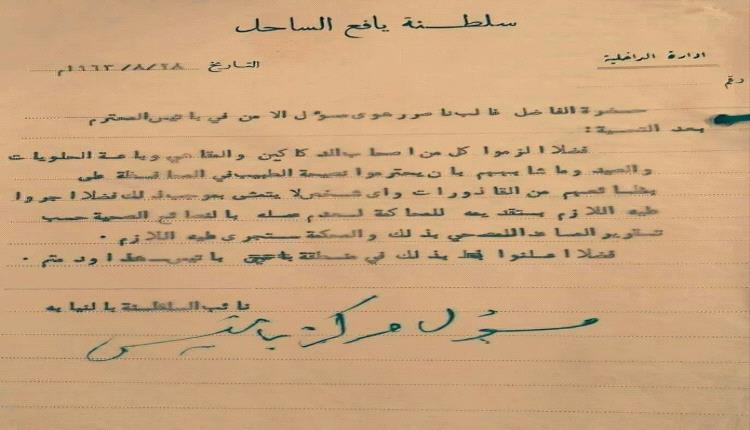 سلطنة يافع الساحل
ادارة الداخلية
التاريخ ٢٨/٨/١٩٦٣م
رقم
حضرة الفاضل غالب ناصر هوى مسؤل الامن في باتيس المحترم
بعد التحية :
فضلا الزموا كل من اصحاب الدكاكين والمقاهي وباعة الحلويات
والصيد وما شابههم بان يحترموا نصيحة الطبيب في المحافظة على
بضائعهم من القاذورات واى شخص لا يتمشى بموجب ذلك فضلا اجروا
عليه اللازم بتقديمه للمحاكمة لعدم عمله بالنصائح الصحية حسب
تقرير المساعد الصحي بذلك والمحكمة ستجرى عليه اللازم .
فضلا اعلنوا بذلك في منطقة باتيس ودمتم .
نائب السلطنة بالنيابه
مسؤل مركز باتيس